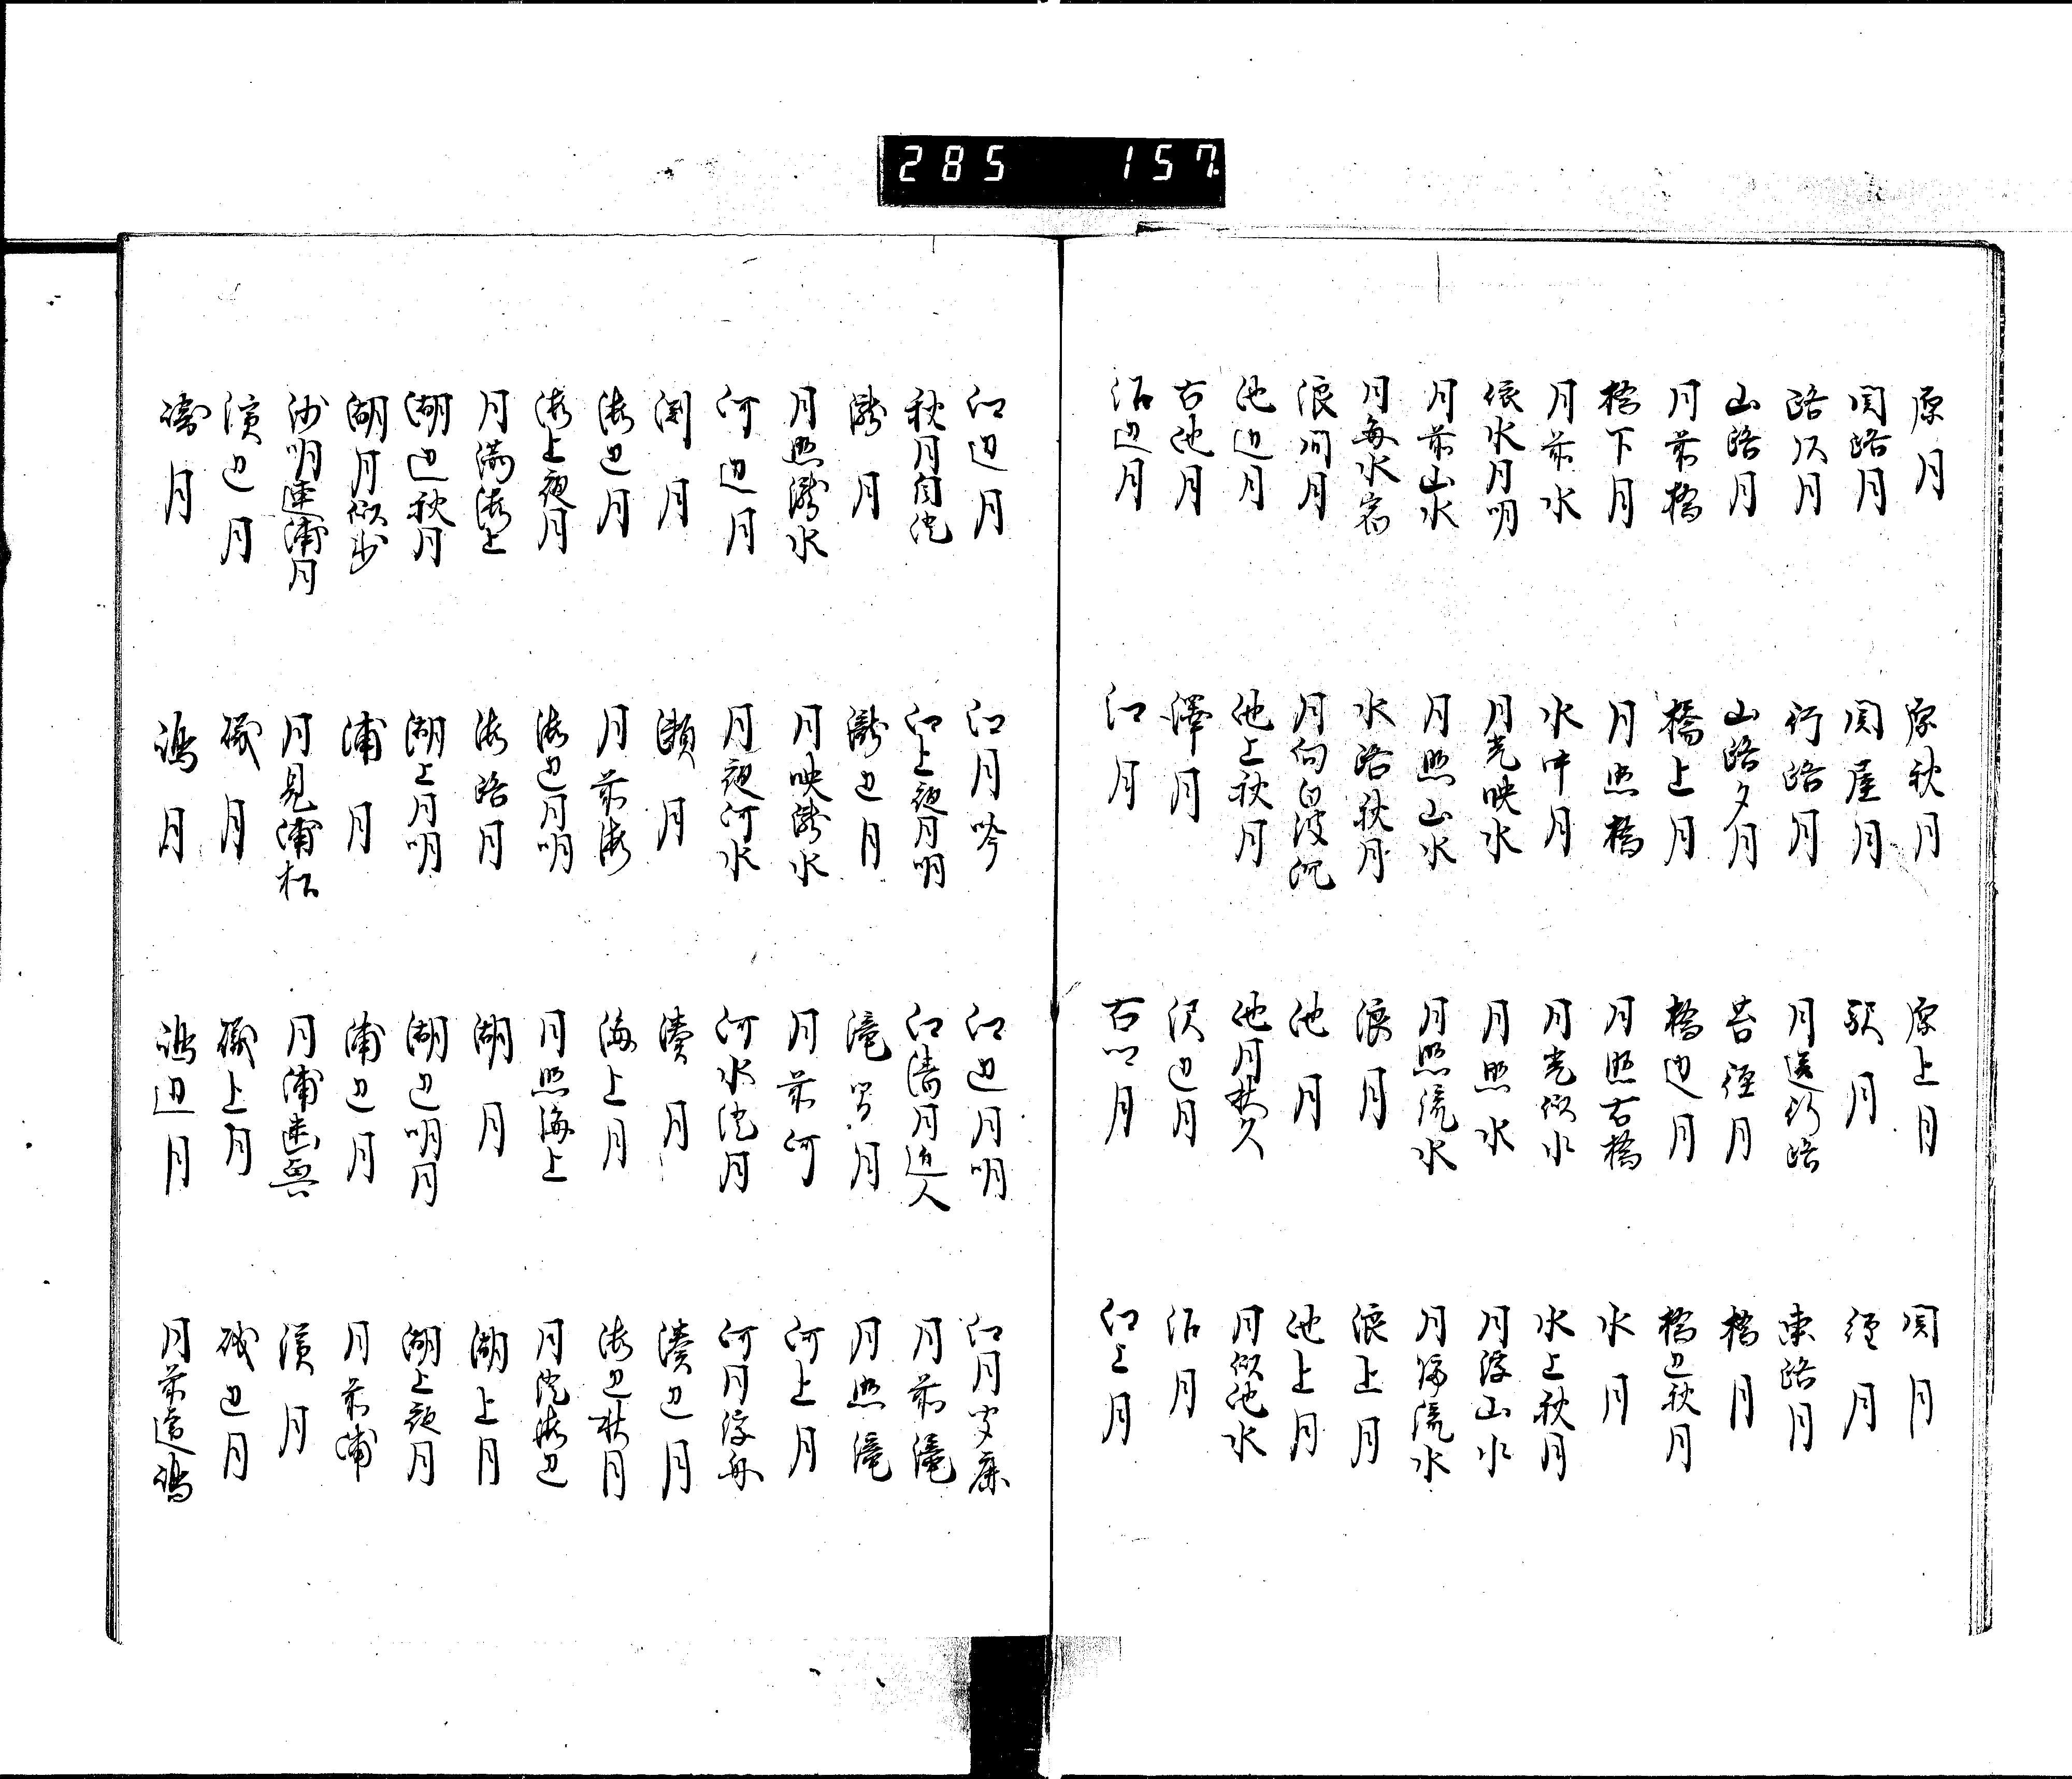 285 157
原月 原秋月 原上月 関月
関路月 関屋月 駅月 径月
路次月 行路月 月送行路 東路月
山路月 山路夕月 苔径月 橋月
月前橋 橋上月 橋辺月 橋辺秋月
橋下月 月照橋 月照古橋 水月
月前水 水中月 月光似水 水上秋月
依水月明 月光映水 月照水 月浮山水
月前山水 月照山水 月照流水 月宿流水
月毎水宿 水路秋月 浪月 浪上月
浪間月 月向白波沉 池月 池上月
池辺月 池上秋月 池月契久 月似池水
古池月 澤月 沢辺月 沼月
沼辺月 江月 古江月 江上月
江辺月 江月吟 江辺月明 江月
秋月 江上夜月明 江清月近人 月前滝
瀧月 瀧辺月 滝月 月照滝
月照瀧水 月映瀧水 月前河 河上月
河辺月 月夜河水 河水澄月 河月浮舟
渕月 瀬月 湊月 湊辺月
海辺月 月前海 海上月 海辺秋月
海上夜月 海辺月明 月照海上 月澄海辺
月満海上 海路月 湖月 湖上月
湖辺秋月 湖上月明 湖辺明月 湖上夜月
湖月似 浦月 浦辺月 月前浦
沙明連浦月 月見浦松 月浦興 濱月
濱辺月 磯月 磯上月 磯辺月
月 嶋月 嶋辺月 月前遠嶋